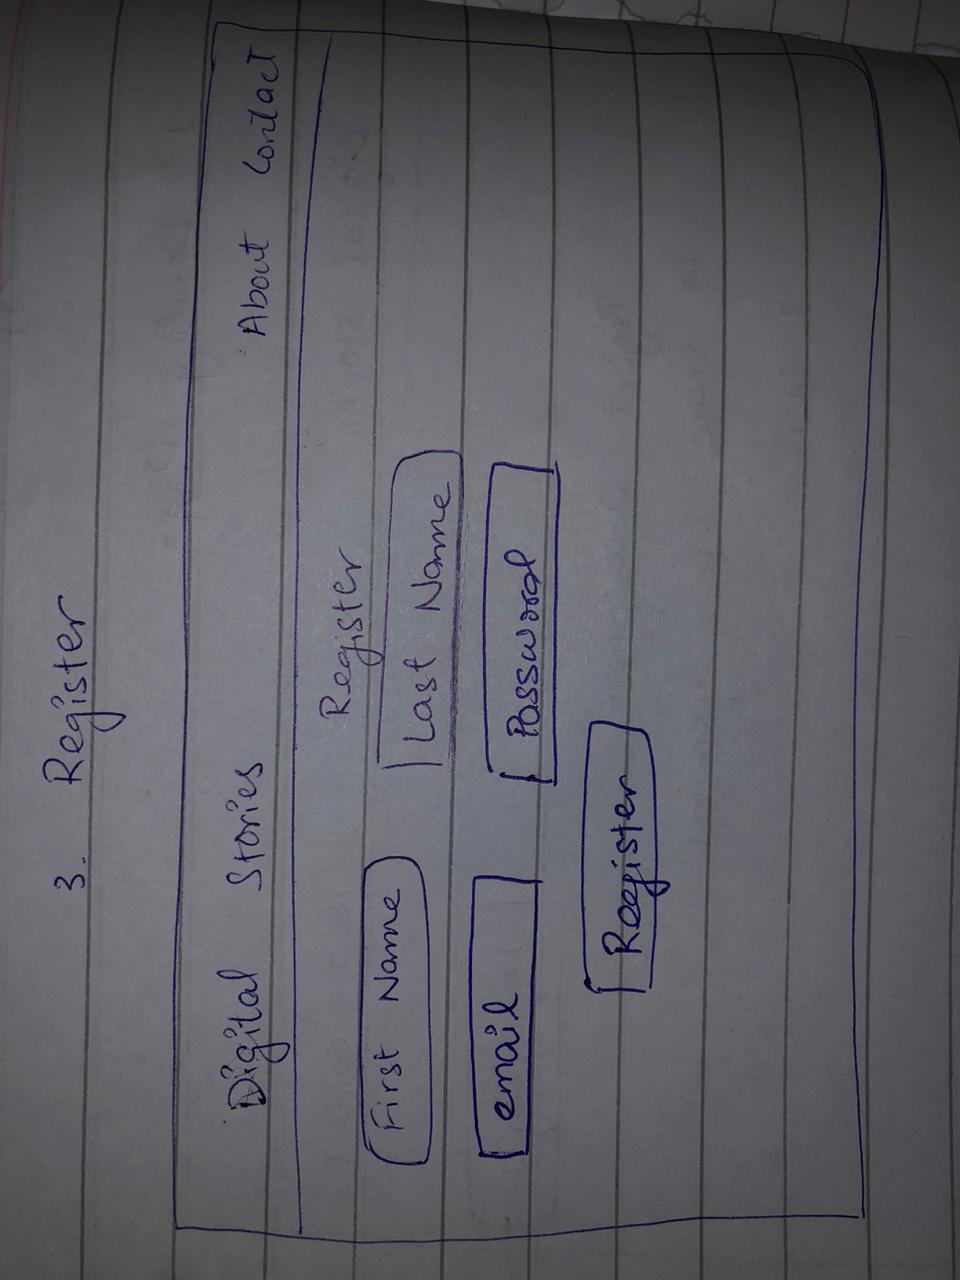 3. Register
Digital Stories About Contact
Register
First Name Last Name
email Password
Register